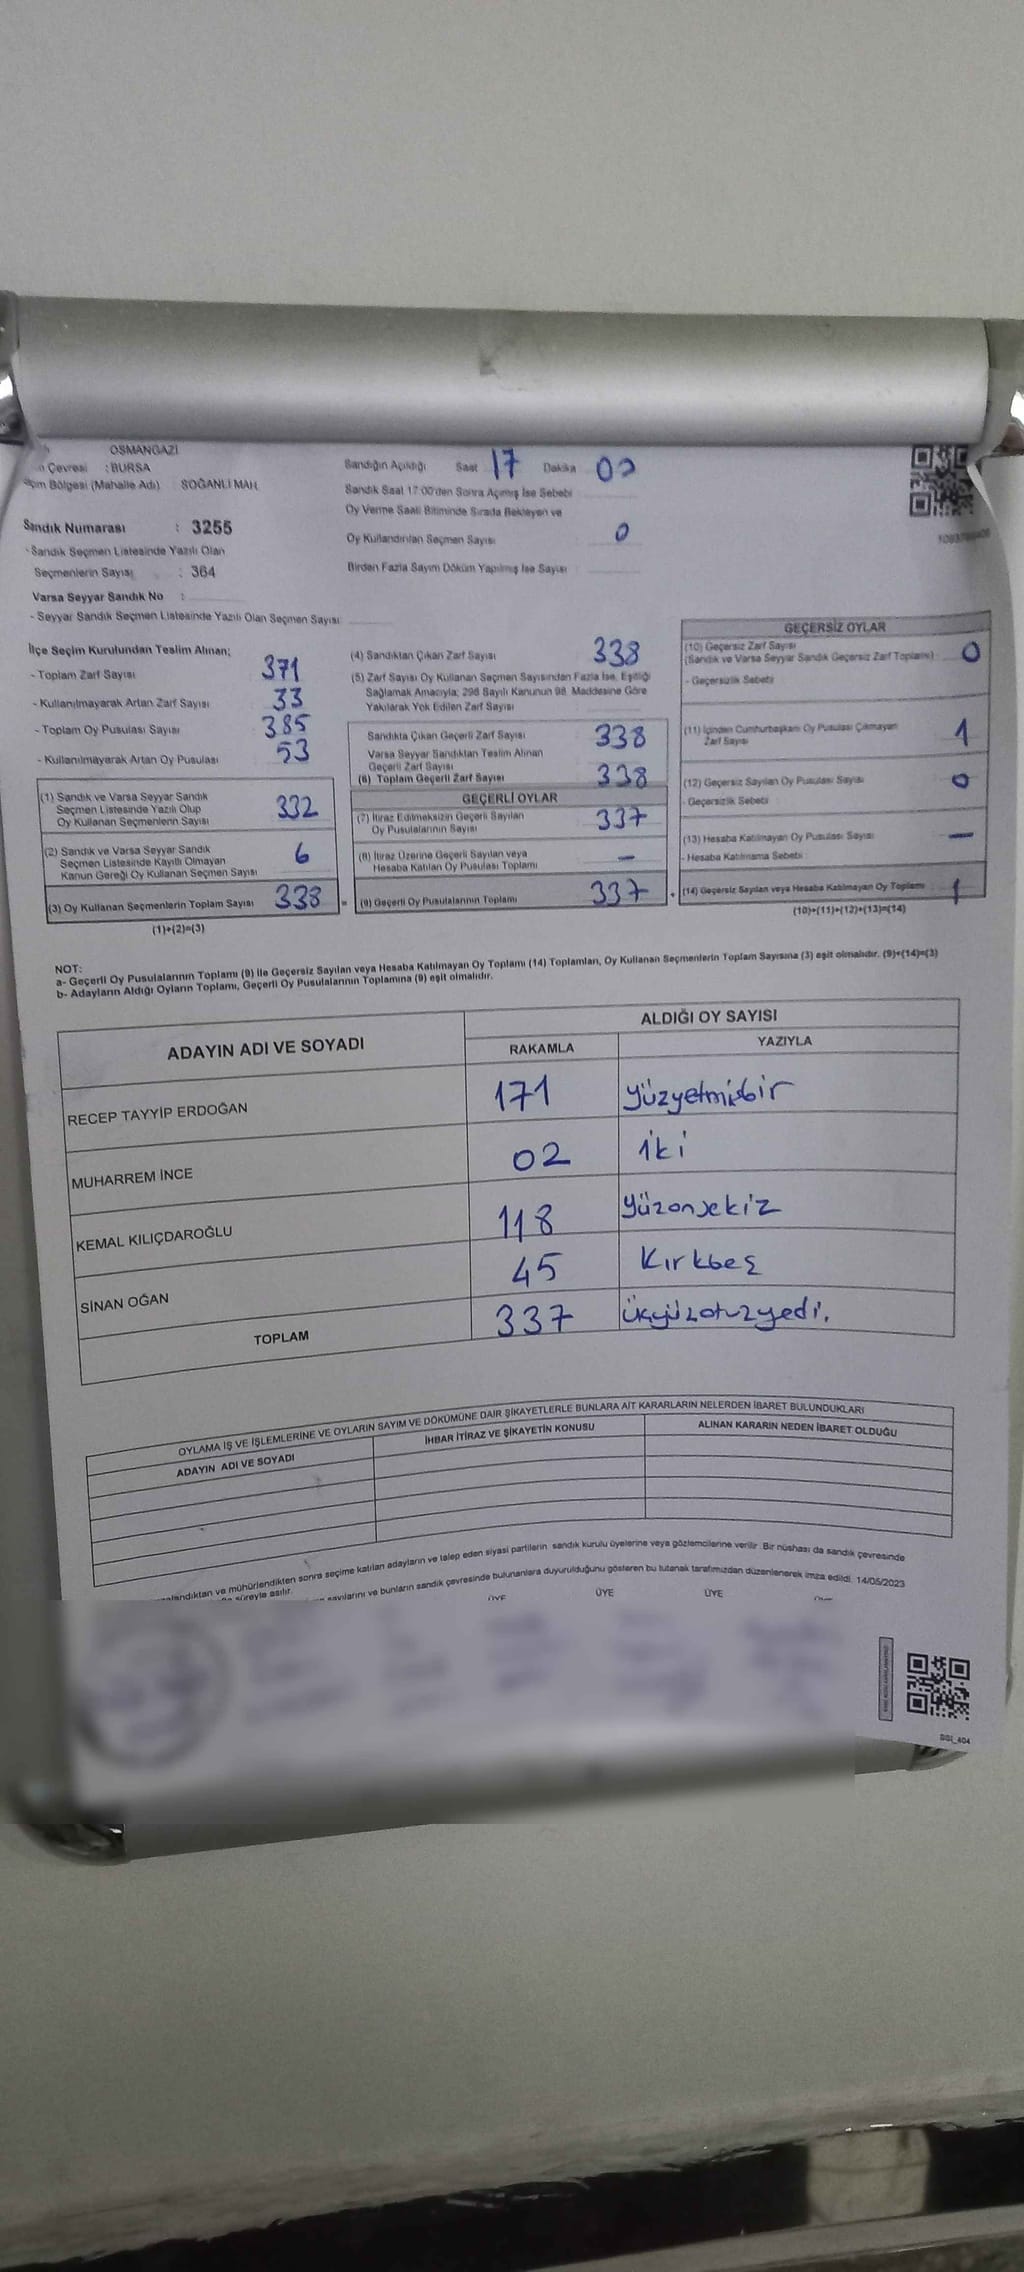 OSMANGAZİ
Çevresi : BURSA
Bölgesi (Mahalle Adı) SOĞANLI MAH.
Sandık Numarası : 3255
- Sandık Seçmen Listesinde Yazılı Olan
Seçmenlerin Sayısı : 364
Varsa Seyyar Sandık No :
- Seyyar Sandık Seçmen Listesinde Yazılı Olan Seçmen Sayısı
Sandığın Açıldığı Saat 17 Dakika 00
Sandık Saat 17:00'den Sonra Açılmış İse Sebebi
Oy Verme Saati Bitiminde Sırada Bekleyen ve
Oy Kullandırılan Seçmen Sayısı 0
Birden Fazla Sayım Döküm Yapılmış İse Sayısı
İlçe Seçim Kurulundan Teslim Alınan;
- Toplam Zarf Sayısı 371
- Kullanılmayarak Artan Zarf Sayısı 33
- Toplam Oy Pusulası Sayısı 385
- Kullanılmayarak Artan Oy Pusulası 53
(1) Sandık ve Varsa Seyyar Sandık
Seçmen Listesinde Yazılı Olup
Oy Kullanan Seçmenlerin Sayısı 332
(2) Sandık ve Varsa Seyyar Sandık
Seçmen Listesinde Kayıtlı Olmayan
Kanun Gereği Oy Kullanan Seçmen Sayısı 6
(3) Oy Kullanan Seçmenlerin Toplam Sayısı 338
(1)+(2)=(3)
(4) Sandıktan Çıkan Zarf Sayısı 338
(5) Zarf Sayısı Oy Kullanan Seçmen Sayısından Fazla İse, Eşitliği
Sağlamak Amacıyla; 298 Sayılı Kanunun 98. Maddesine Göre
Yakılarak Yok Edilen Zarf Sayısı
Sandıkta Çıkan Geçerli Zarf Sayısı 338
Varsa Seyyar Sandıktan Teslim Alınan
Geçerli Zarf Sayısı
(6) Toplam Geçerli Zarf Sayısı 338
GEÇERLİ OYLAR
(7) İtiraz Edilmeksizin Geçerli Sayılan
Oy Pusulalarının Sayısı 337
(8) İtiraz Üzerine Geçerli Sayılan veya
Hesaba Katılan Oy Pusulası Toplamı –
= (9) Geçerli Oy Pusulalarının Toplamı 337 +
GEÇERSİZ OYLAR
(10) Geçersiz Zarf Sayısı
(Sandık ve Varsa Seyyar Sandık Geçersiz Zarf Toplamı) : 0
- Geçersizlik Sebebi
(11) İçinden Cumhurbaşkanı Oy Pusulası Çıkmayan
Zarf Sayısı 1
(12) Geçersiz Sayılan Oy Pusulası Sayısı 0
- Geçersizlik Sebebi
(13) Hesaba Katılmayan Oy Pusulası Sayısı –
- Hesaba Katılmama Sebebi
(14) Geçersiz Sayılan veya Hesaba Katılmayan Oy Toplamı : 1
(10)+(11)+(12)+(13)=(14)
NOT:
a- Geçerli Oy Pusulalarının Toplamı (9) ile Geçersiz Sayılan veya Hesaba Katılmayan Oy Toplamı (14) Toplamları, Oy Kullanan Seçmenlerin Toplam Sayısına (3) eşit olmalıdır. (9)+(14)=(3)
b- Adayların Aldığı Oyların Toplamı, Geçerli Oy Pusulalarının Toplamına (9) eşit olmalıdır.
ADAYIN ADI VE SOYADI
ALDIĞI OY SAYISI
RAKAMLA YAZIYLA
RECEP TAYYİP ERDOĞAN 171 yüzyetmişbir
MUHARREM İNCE 02 iki
KEMAL KILIÇDAROĞLU 118 yüzonsekiz
SİNAN OĞAN 45 Kırkbeş
TOPLAM 337 üçyüzotuzyedi.
OYLAMA İŞ VE İŞLEMLERİNE VE OYLARIN SAYIM VE DÖKÜMÜNE DAİR ŞİKAYETLERLE BUNLARA AİT KARARLARIN NELERDEN İBARET BULUNDUKLARI
ADAYIN ADI VE SOYADI İHBAR İTİRAZ VE ŞİKAYETİN KONUSU ALINAN KARARIN NEDEN İBARET OLDUĞU
ve mühürlendikten sonra seçime katılan adayların ve talep eden siyasi partilerin sandık kurulu üyelerine veya gözlemcilerine verilir. Bir nüshası da sandık çevresinde
süreyle asılır.
sayılarını ve bunların sandık çevresinde bulunanlara duyurulduğunu gösteren bu tutanak tarafımızdan düzenlenerek imza edildi. 14/05/2023
ÜYE ÜYE ÜYE